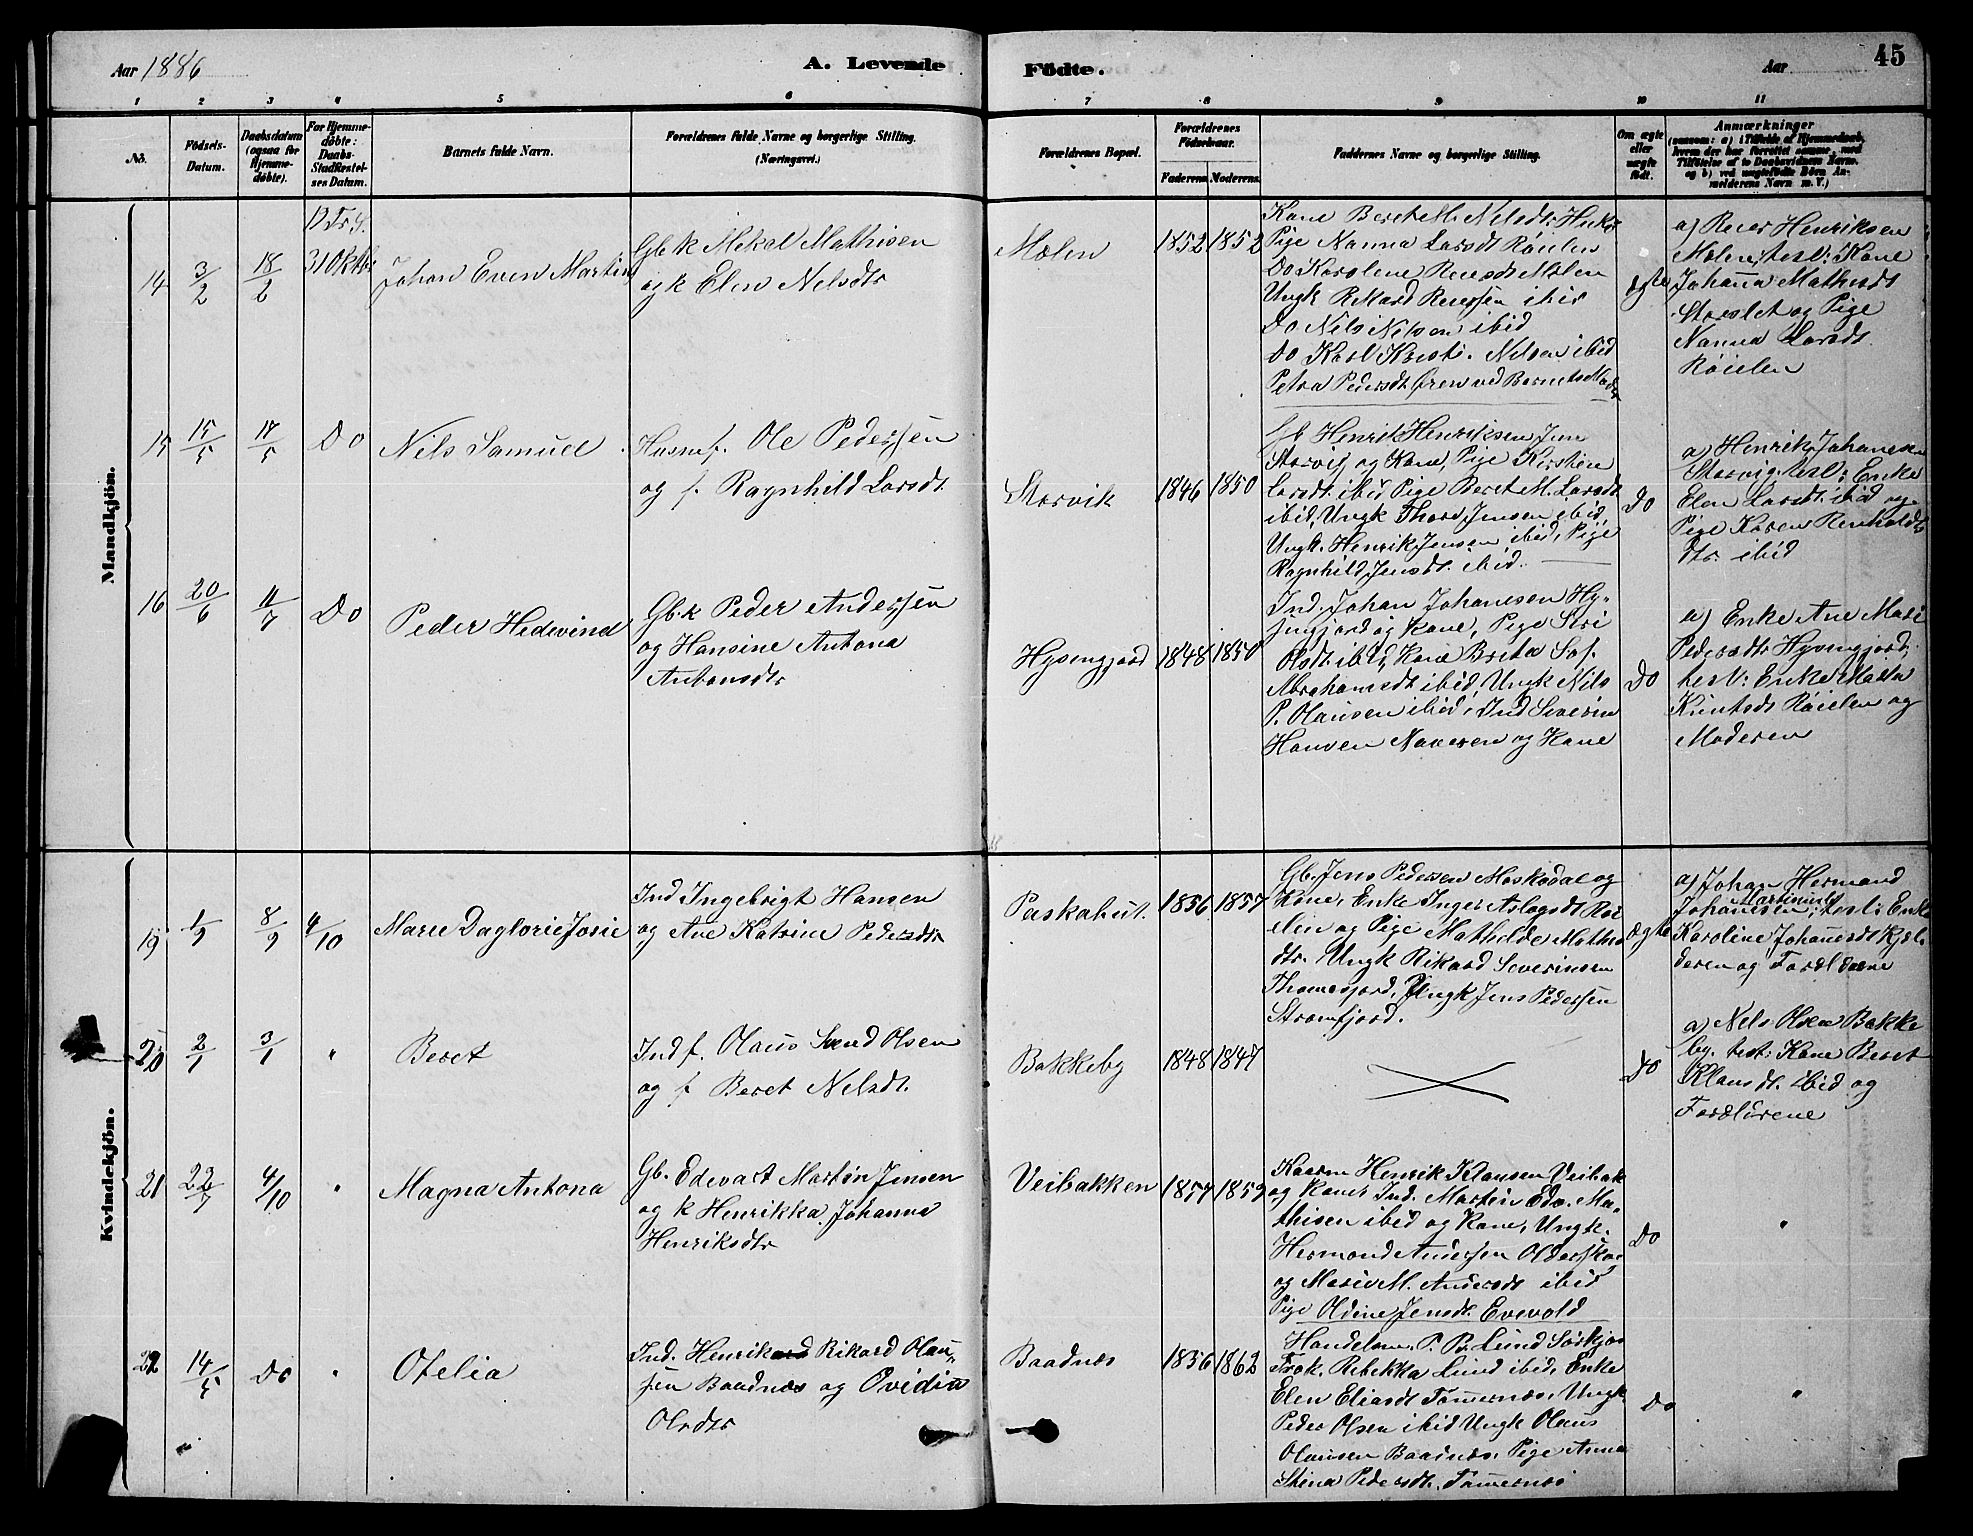 Aar 1886
A. Levende Födte.
Aar
45
1 2 3 4 5 6 7 8 9 10 11
No.
Födsels-
Datum.
Daabsdatum
(ogsaa for
Hjemme-
döbte).
For Hjemme-
döbte:
Daabs-
Stadfæstel-
ses Datum.
Barnets fulde Navn.
Forældrenes fulde Navne og borgerlige Stilling.
(Næringsvei.)
Forældrenes Bopæl.
Forældrenes
Födselsaar.
Faderens. Moderens.
Faddernes Navne og borgerlige Stilling.
Om ægte
eller
uægte
födt.
Anmærkninger
(saasom: a) i Tilfælde af Hjemmedaab,
hvem der har forrettet samme, med
Tilföielse af to Daabsvidners Navne,
og b) ved uægtefödte Börn An-
melderens Navn m. V.)
Mandkjön.
14
3/2
18/2
31 Oktbr
Johan Even Martin
Gbk Mikal Mathisen
og k Elen Nelsdtr
Molen
1852 1852
Kone Beret M. Nelsdtr
Pige Nanna Larsdt Röielen
Do Karolene Reiersdt Molen
Ungk Rikard Reiersen ibid
Do Nils Nelsen ibid
Do Karl Kristi. Nilsen ibid
Petra Pedersdt. Øren ved Barnets Moder
ægte
a) Reier Henriksen
Molen, test: Kone
Johanna Mathisdt
Storslet og Pige
Nanna Larsdt.
Röielen
15
15/5
17/5
Do
Nils Samuel
Husmf. Ole Pederssen
og f. Ragnhild Larsdt.
Storvik
1846 1850
Gb Henrik Henriksen Jun
Storvig og Kone, Pige Kirstien
Larsdt. ibid Pige Beret M. Larsdt
ibid, Ungk Thore Jensen ibid,
Ungk. Henrik Jensen ibid, Pige
Ragnhild Jensdt. ibid.
Do
a) Henrik Johanesen
Storvig, test: Enke
Elen Larsdt. ibid og
Pige Karen Renholdt
dtr. ibid
16
20/6
11/7
Do
Peder Hedevind
Gb.k Peder Anderssen
og Hansine Antona
Antonsdtr
Hysingjord
1848 1850
Ind. Johan Johanesen Hy-
singjord og Kone, Pige Siri
Olsdt. ibid, Kone Brita Sof.
Abrahamsdt ibid, Ungk Nils
P. Olausen ibid, Ind Severin
Hansen Naveren og Kone
Do
a) Enke Ane Mari
Pedersdtr Hysingjord,
test: Enke Marta
Knutsdt Röielen og
Moderen
Kvindekjön.
19
1/9
8/9
4/10
Marie Daglorie Josie
Ind Ingebrigt Hansen
og Ane Katrine Pedersdtr
Paskahut.
1856 1857
Gb. Jens Pedersen Moskodal og
Kone, Enke Inger Aslagsdt Röi-
elen og Pige Mathilde Mathis
dtr. Ungk Rikard Severinsen
Thomasjord, Ungk Jens Pederssen
Stromfjord.
ægte
a) Johan Hermand
Martinius
Johansen, test: Enke
Karoline Johanesdt Kjel-
deren og Forældrene
20
2/1
3/1
"
Beret
Ind f. Olaus Svend Olsen
og f Beret Nelsdt.
Bakkeby
1848 1847
Do
a) Nels Olsen Bakke
by. test: Kone Beret
Klausdt. ibid og
Forældrene
21
22/7
4/10
"
Magna Antona
Gb. Edevart Martin Jensen
og k Henrikka Johanna
Henriksdtr
Veibakken
1857 1859
Kaarm Henrik Klausen Veibak
og Kone Ind. Martin Edv. Ma-
thisen ibid og Kone, Ungk.
Hermand Anderssen Olderskog
og Marie M. Andersdt ibid
Pige Oldine Jensdt. Evevold
Do
"
22
14/5
Do
"
Otelia
Ind. Henrik Rikard Olau-
sen Baadnæs og Ovidia
Olsdtr
Baadnæs
1856 1862
Handelsm. P. B. Lund Sörkjos
Frök. Rebekka Lund ibid, Enke
Elen Eliasdt Tömernæs, Ungk
Peder Olsen ibid Ungk Olaus
Olausen Baadnæs, Pige Anna
Stina Pedersdt. Tömernæs
Do
"